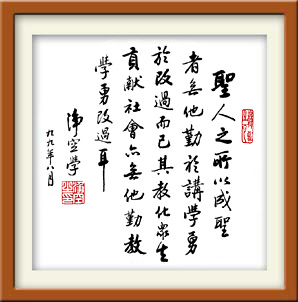 聖人之所以成聖
者無他勤於講學勇
於改過而已其教化眾生
貢獻社會亦無他勤教
學勇改過耳
淨空學
九九年八月